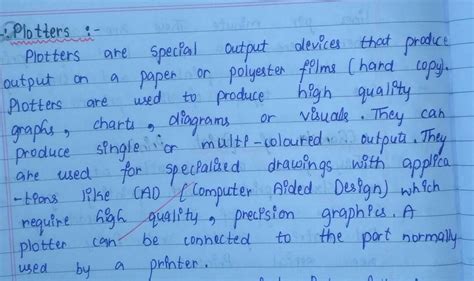 :- Plotters :-
Plotters are special output devices that produce
output on a paper or polyester films (hard copy).
Plotters are used to produce high quality
graphs, charts, diagrams or visuals. They can
produce single or multi-coloured outputs. They
are used for specialised drawings with applica
-tions like CAD (Computer Aided Design) which
require high quality, precision graphics. A
plotter can be connected to the part normally
used by a printer.